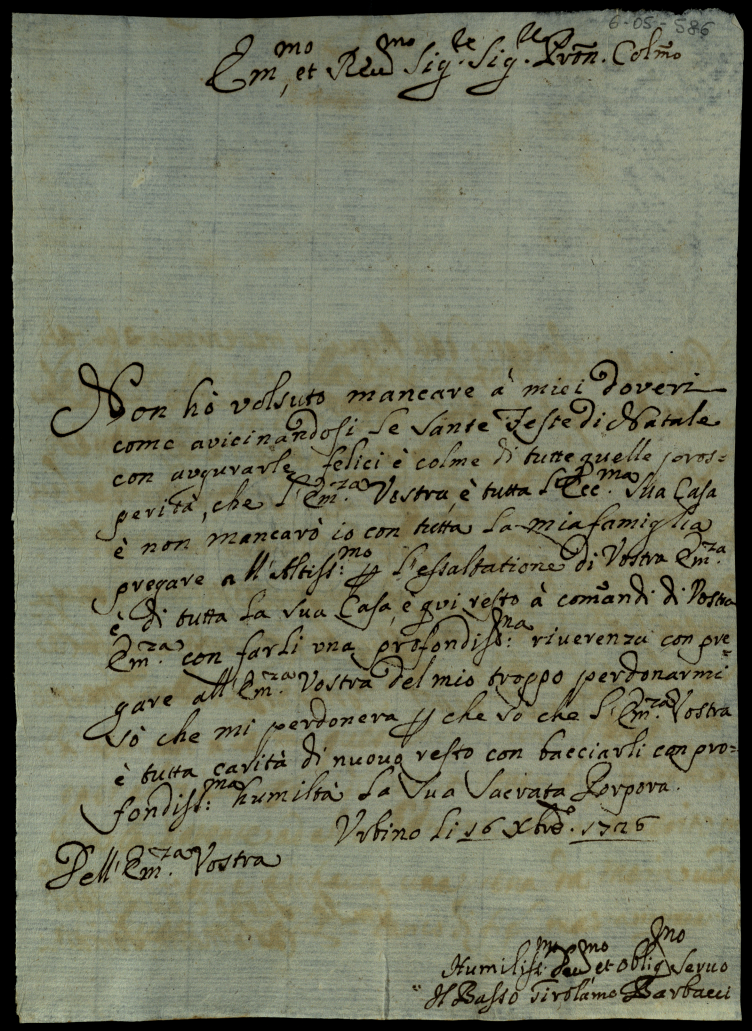 6-05-586
Em.mo et Reu.mo Sig.re Sig.re Prōn. Colm̄o
Non hò volsuto mancare à miei doveri
come avicinandosi le sante Feste di Natale
con augurarle felici è colme di tutte quelle pros=
perità, che l'Em.za Vostra, è tutta l'Ecc.ma sua Casa
è non mancarò io con tutta la mia famiglia
pregare all'Altiss:mo p l'essaltatione di Vostra Em.za
è di tutta la sua Casa, è qui resto à comandi di Vostra
Em.za con farli una profondiss:ma riuerenza con pre=
gare all'Em.za Vostra del mio troppo perdonarmi
sò che mi perdonera p che sò che l'Em.za Vostra
è tutta carità di nuouo resto con bacciarli con pro=
fondiss:ma humiltà la sua sacrata Porpora.
Urbino li 16 Xbre. 1726
Dell'Em.za Vostra
Humiliss.mo Deu.mo et oblig.mo Seruo
Il Basso Girolamo Barbacci